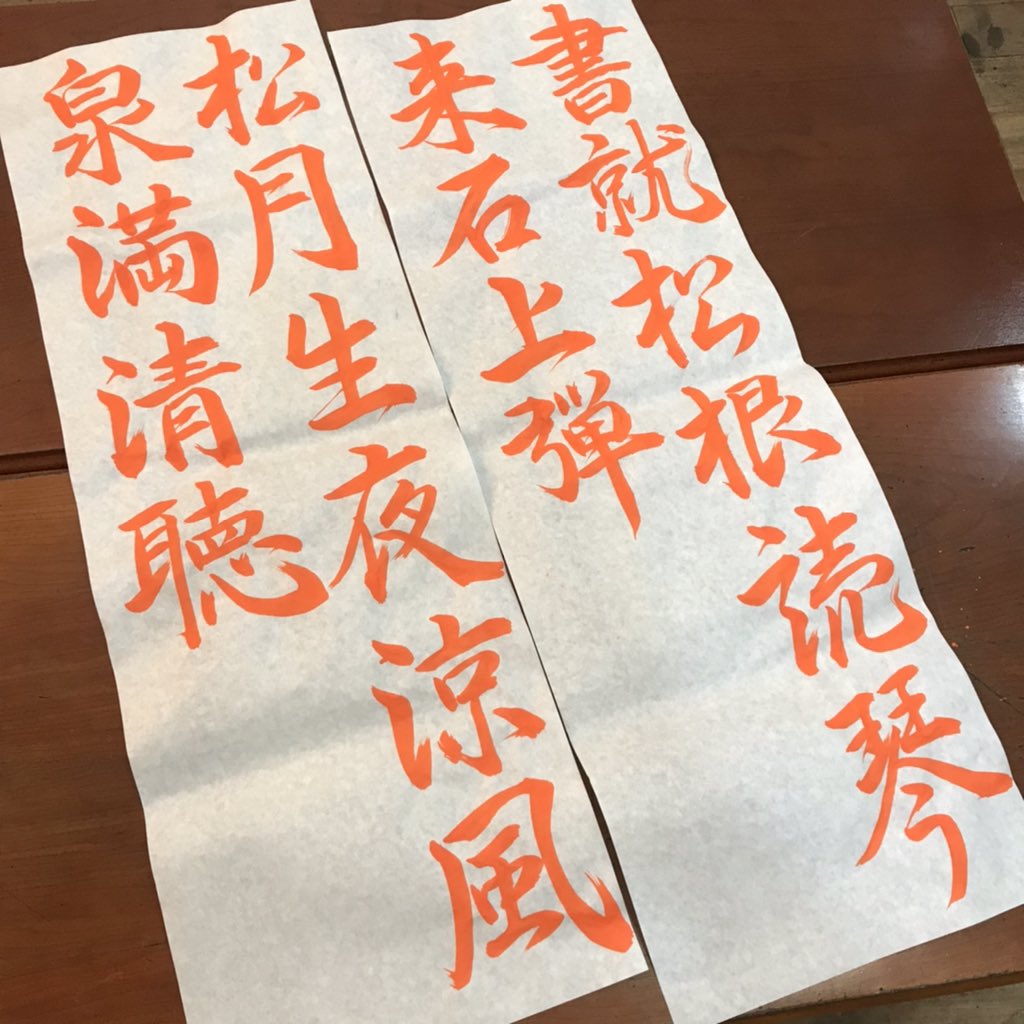 書就松根読琴
来石上弾
松月生夜涼風
泉満清聴